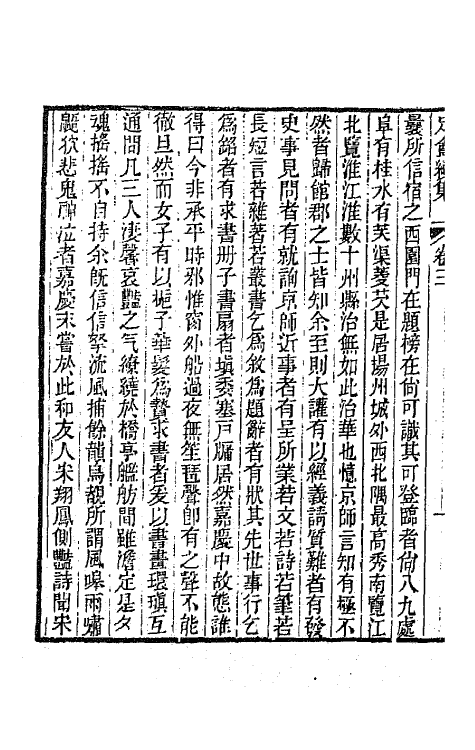 定盦續集 卷三 一
曩所信宿之西園門在題榜在尙可識其可登臨者尙八九處
阜有桂水有芙渠菱芡是居揚州城外西北隅最高秀南覽江
北覽淮江淮數十州縣治無如此冶華也憶京師言知有極不
然者歸館郡之士皆知余至則大讙有以經義請質難者有發
史事見問者有就詢京師近事者有呈所業若文若詩若筆若
長短言若雜著若叢書乞爲敘爲題辭者有狀其先世事行乞
爲銘者有求書册子書扇者塡委塞戸牖居然嘉慶中故態誰
得曰今非承平時邪惟窗外船過夜無笙琶聲卽有之聲不能
徹旦然而女子有以梔子華髮爲贄求書者爰以書畫環瑱互
通問凡三人淒馨哀豔之气繚繞於橋亭艦舫間雖澹定是夕
魂搖搖不自持余旣信信拏流風捕餘韻烏覩所謂風嘷雨嘯
鼯狖悲鬼神泣者嘉慶末嘗於此和友人宋翔鳳側豔詩聞宋